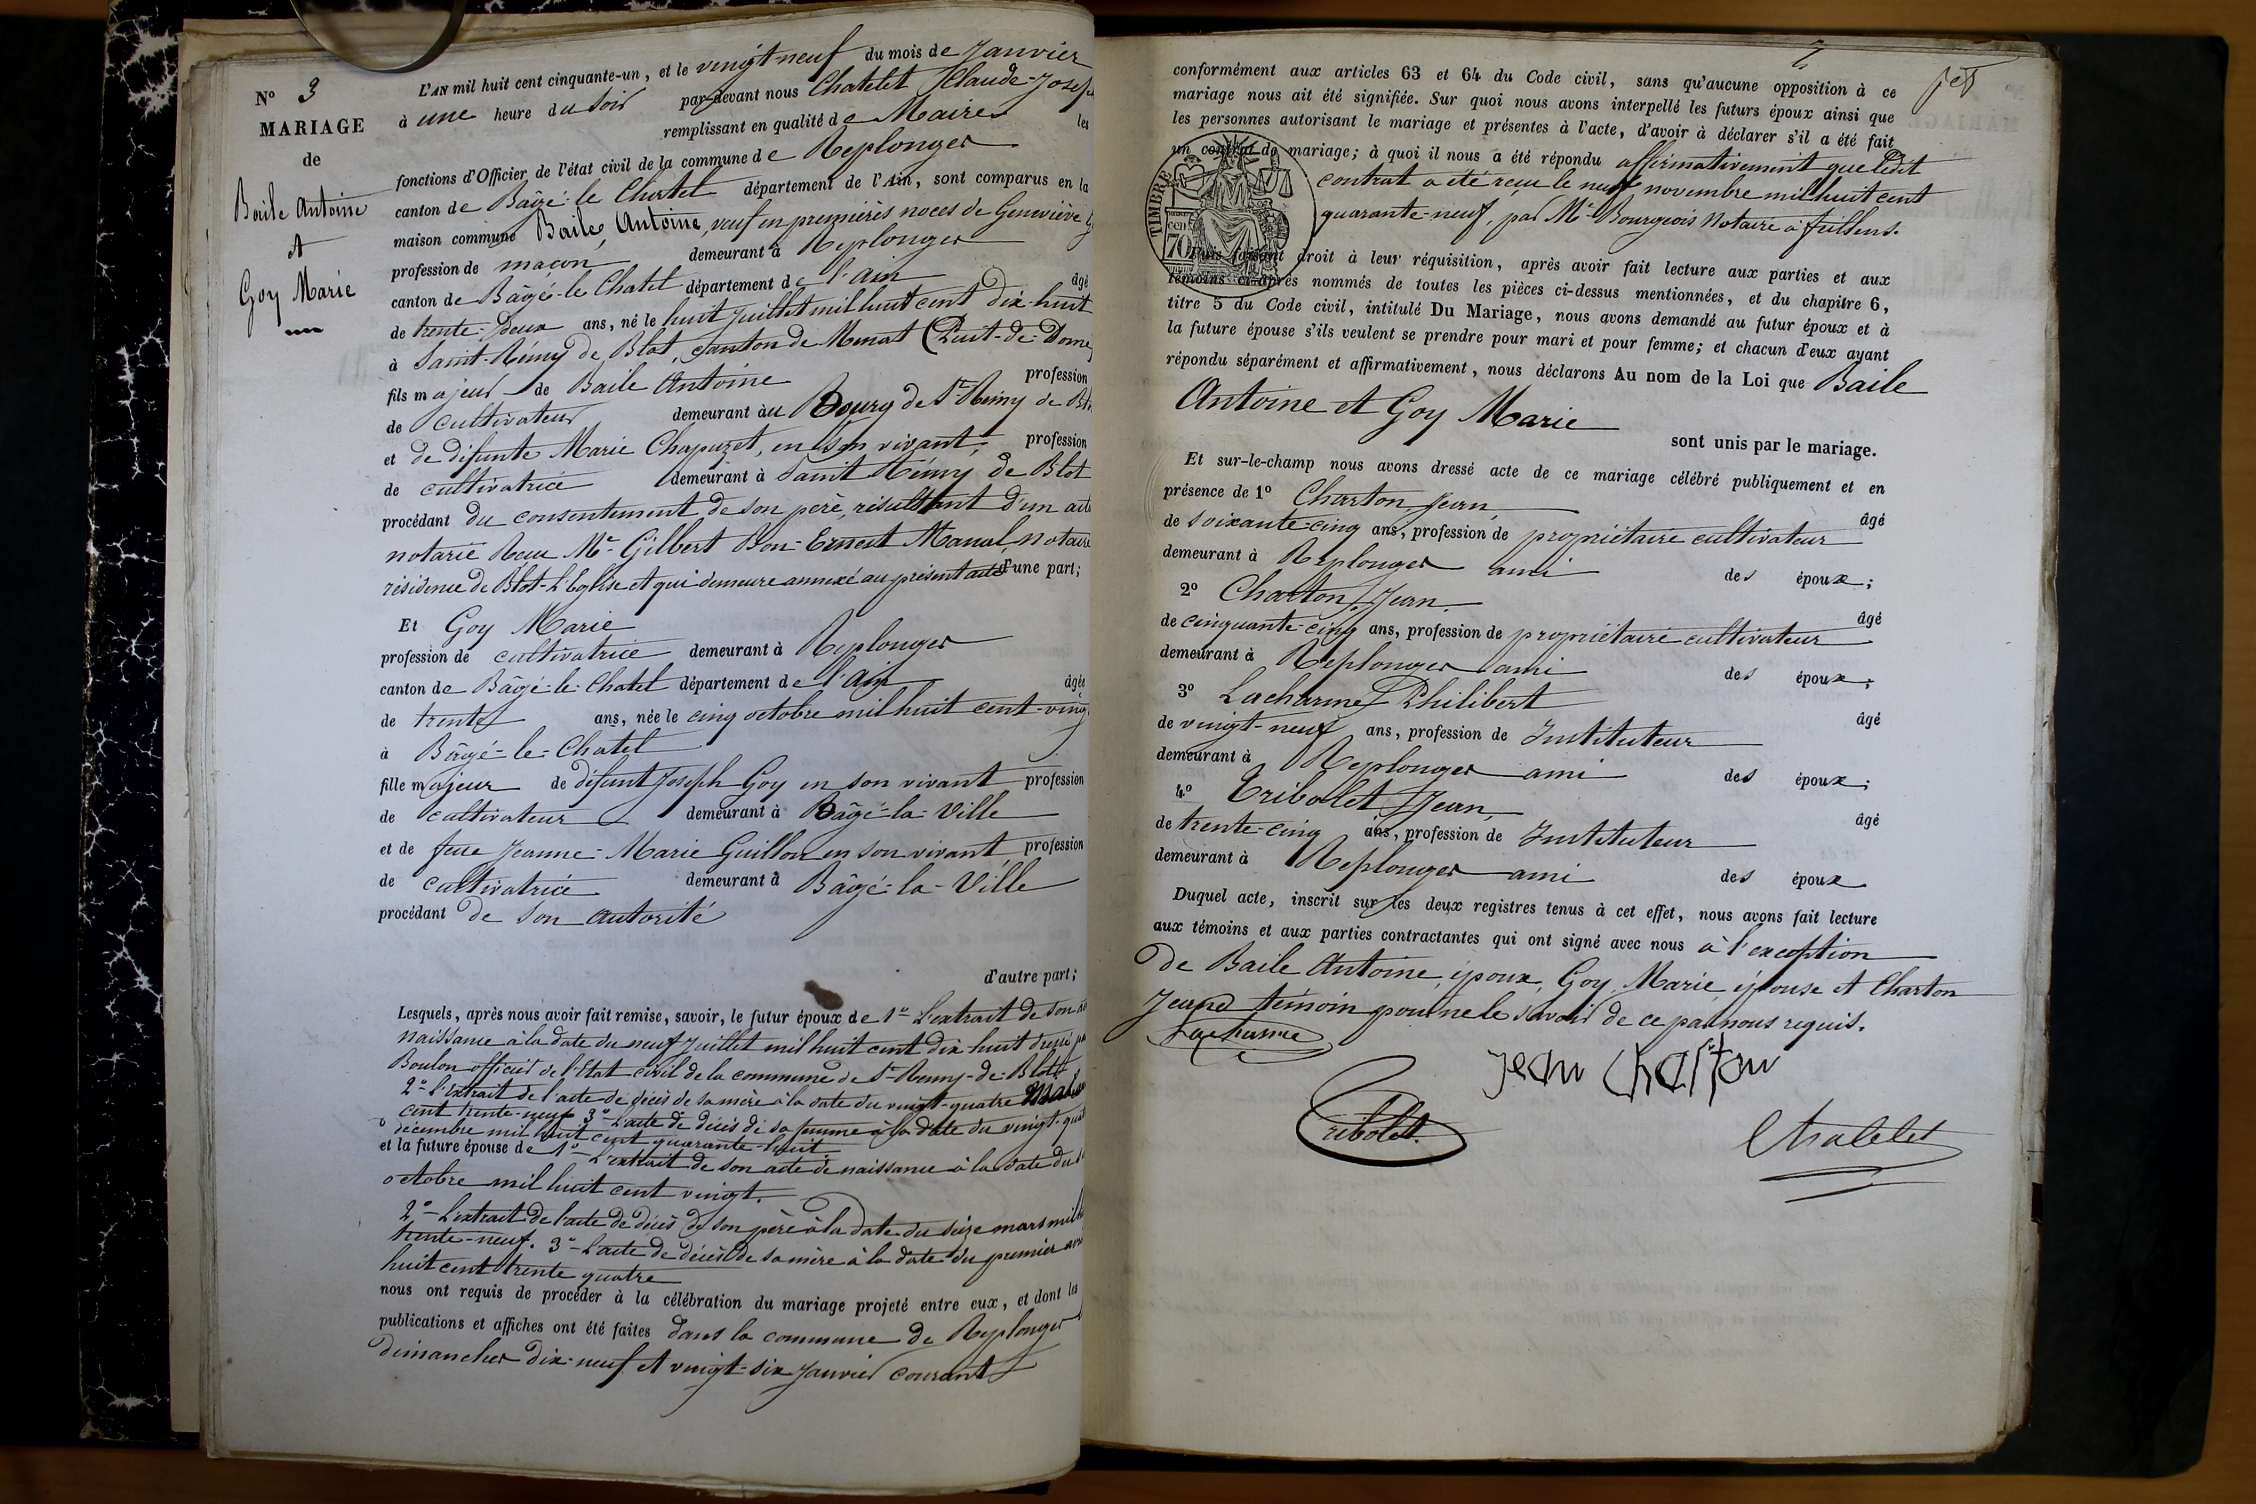 N° 3
MARIAGE
de
Baile Antoine
et
Goy Marie
L'AN mil huit cent cinquante-un, et le vingt-neuf du mois de Janvier
à une heure du soir par-devant nous Chatelet Claude-Josep
remplissant en qualité de Maire les
fonctions d'Officier de l'état civil de la commune de Replonger
canton de Bâgé-le-Chatel département de l'Ain, sont comparus en la
maison commune Baile, Antoine, veuf en premières noces de Geneviève
profession de maçon demeurant à Replonger
canton de Bâgé-le-Chatel département de l'ain âgé
de trente-deux ans, né le huit juillet mil huit cent dix-huit
à Saint-Rémy de Blot, canton de Menat (Puit-de-Dome)
fils majeur de Baile Antoine profession
de cultivateur demeurant au Bourg de St Remy de Blo
et de défunte Marie Chapuzet, en son vivant, profession
de cultivatrice demeurant à Saint Rémy de Blot
procédant du consentement de son père, résultant d'un acte
notarié Reçu Me Gilbert Bon-Ernest Manal, notaire
résidence de Blot-L'Eglise et qui demeure annexé au présent acte d'une part;
Et Goy Marie
profession de cultivatrice demeurant à Replonger
canton de Bâgé-le-Chatel département de l'Ain âgée
de trente ans, née le cinq octobre mil huit cent-ving
à Bâgé-le-Chatel
fille majeur de défunt Joseph Goy en son vivant profession
de cultivateur demeurant à Bâgé-la-Ville
et de feue Jeanne-Marie Guillon en son vivant profession
de cultivatrice demeurant à Bâgé-la-Ville
procédant de son autorité
d'autre part;
Lesquels, après nous avoir fait remise, savoir, le futur époux de 1° L'extrait de son
naissance à la date du neuf juillet mil huit cent dix huit dressé pa
Boulon officier de l'Etat civil de la commune de St-Remy-de-Blot
2° L'extrait de l'acte de décès de sa mère à la date du vingt-quatre
cent trente-neuf 3° L'acte de décès de sa femme à la date du vingt-qua
décembre mil huit cent quarante-huit
et la future épouse de 1° L'extrait de son acte de naissance à la date du
octobre mil huit cent vingt.
2° L'extrait de l'acte de décès de son père à la date du seize mars mil
trente-neuf. 3° L'acte de décès de sa mère à la date du premier
huit cent trente quatre
nous ont requis de procéder à la célébration du mariage projeté entre eux, et dont les
publications et affiches ont été faites dans la commune de Replonger
dimanches dix-neuf et vingt-six Janvier courant
conformément aux articles 63 et 64 du Code civil, sans qu'aucune opposition à ce
mariage nous ait été signifiée. Sur quoi nous avons interpellé les futurs époux ainsi que
les personnes autorisant le mariage et présentes à l'acte, d'avoir à déclarer s'il a été fait
un contrat de mariage; à quoi il nous a été répondu affirmativement que ledit
contrat a été reçu le neuf novembre mil huit cent
quarante-neuf, par Me Bourgeois Notaire à
TIMBRE
70
Puis faisant droit à leur réquisition, après avoir fait lecture aux parties et aux
témoins ci-après nommés de toutes les pièces ci-dessus mentionnées, et du chapitre 6,
titre 5 du Code civil, intitulé Du Mariage, nous avons demandé au futur époux et à
la future épouse s'ils veulent se prendre pour mari et pour femme; et chacun d'eux ayant
répondu séparément et affirmativement, nous déclarons Au nom de la Loi que Baile
Antoine et Goy Marie
sont unis par le mariage.
Et sur-le-champ nous avons dressé acte de ce mariage célébré publiquement et en
présence de 1° Charton Jean, âgé
de soixante-cinq ans, profession de propriétaire cultivateur
demeurant à Replonger ami des époux;
2° Charton, Jean. âgé
de cinquante-cinq ans, profession de propriétaire cultivateur
demeurant à Replonger ami des époux;
3° Lacharme Philibert âgé
de vingt-neuf ans, profession de Instituteur
demeurant à Replonger ami des époux;
4° Tribolet, Jean, âgé
de trente-cinq ans, profession de Instituteur
demeurant à Replonger ami des époux
Duquel acte, inscrit sur les deux registres tenus à cet effet, nous avons fait lecture
aux témoins et aux parties contractantes qui ont signé avec nous à l'exception
de Baile Antoine, époux, Goy Marie, épouse et Charton
Jean témoin pour ne le savoir de ce par nous requis.
Lacharme
Jean Charton
Tribolet
Chatelet